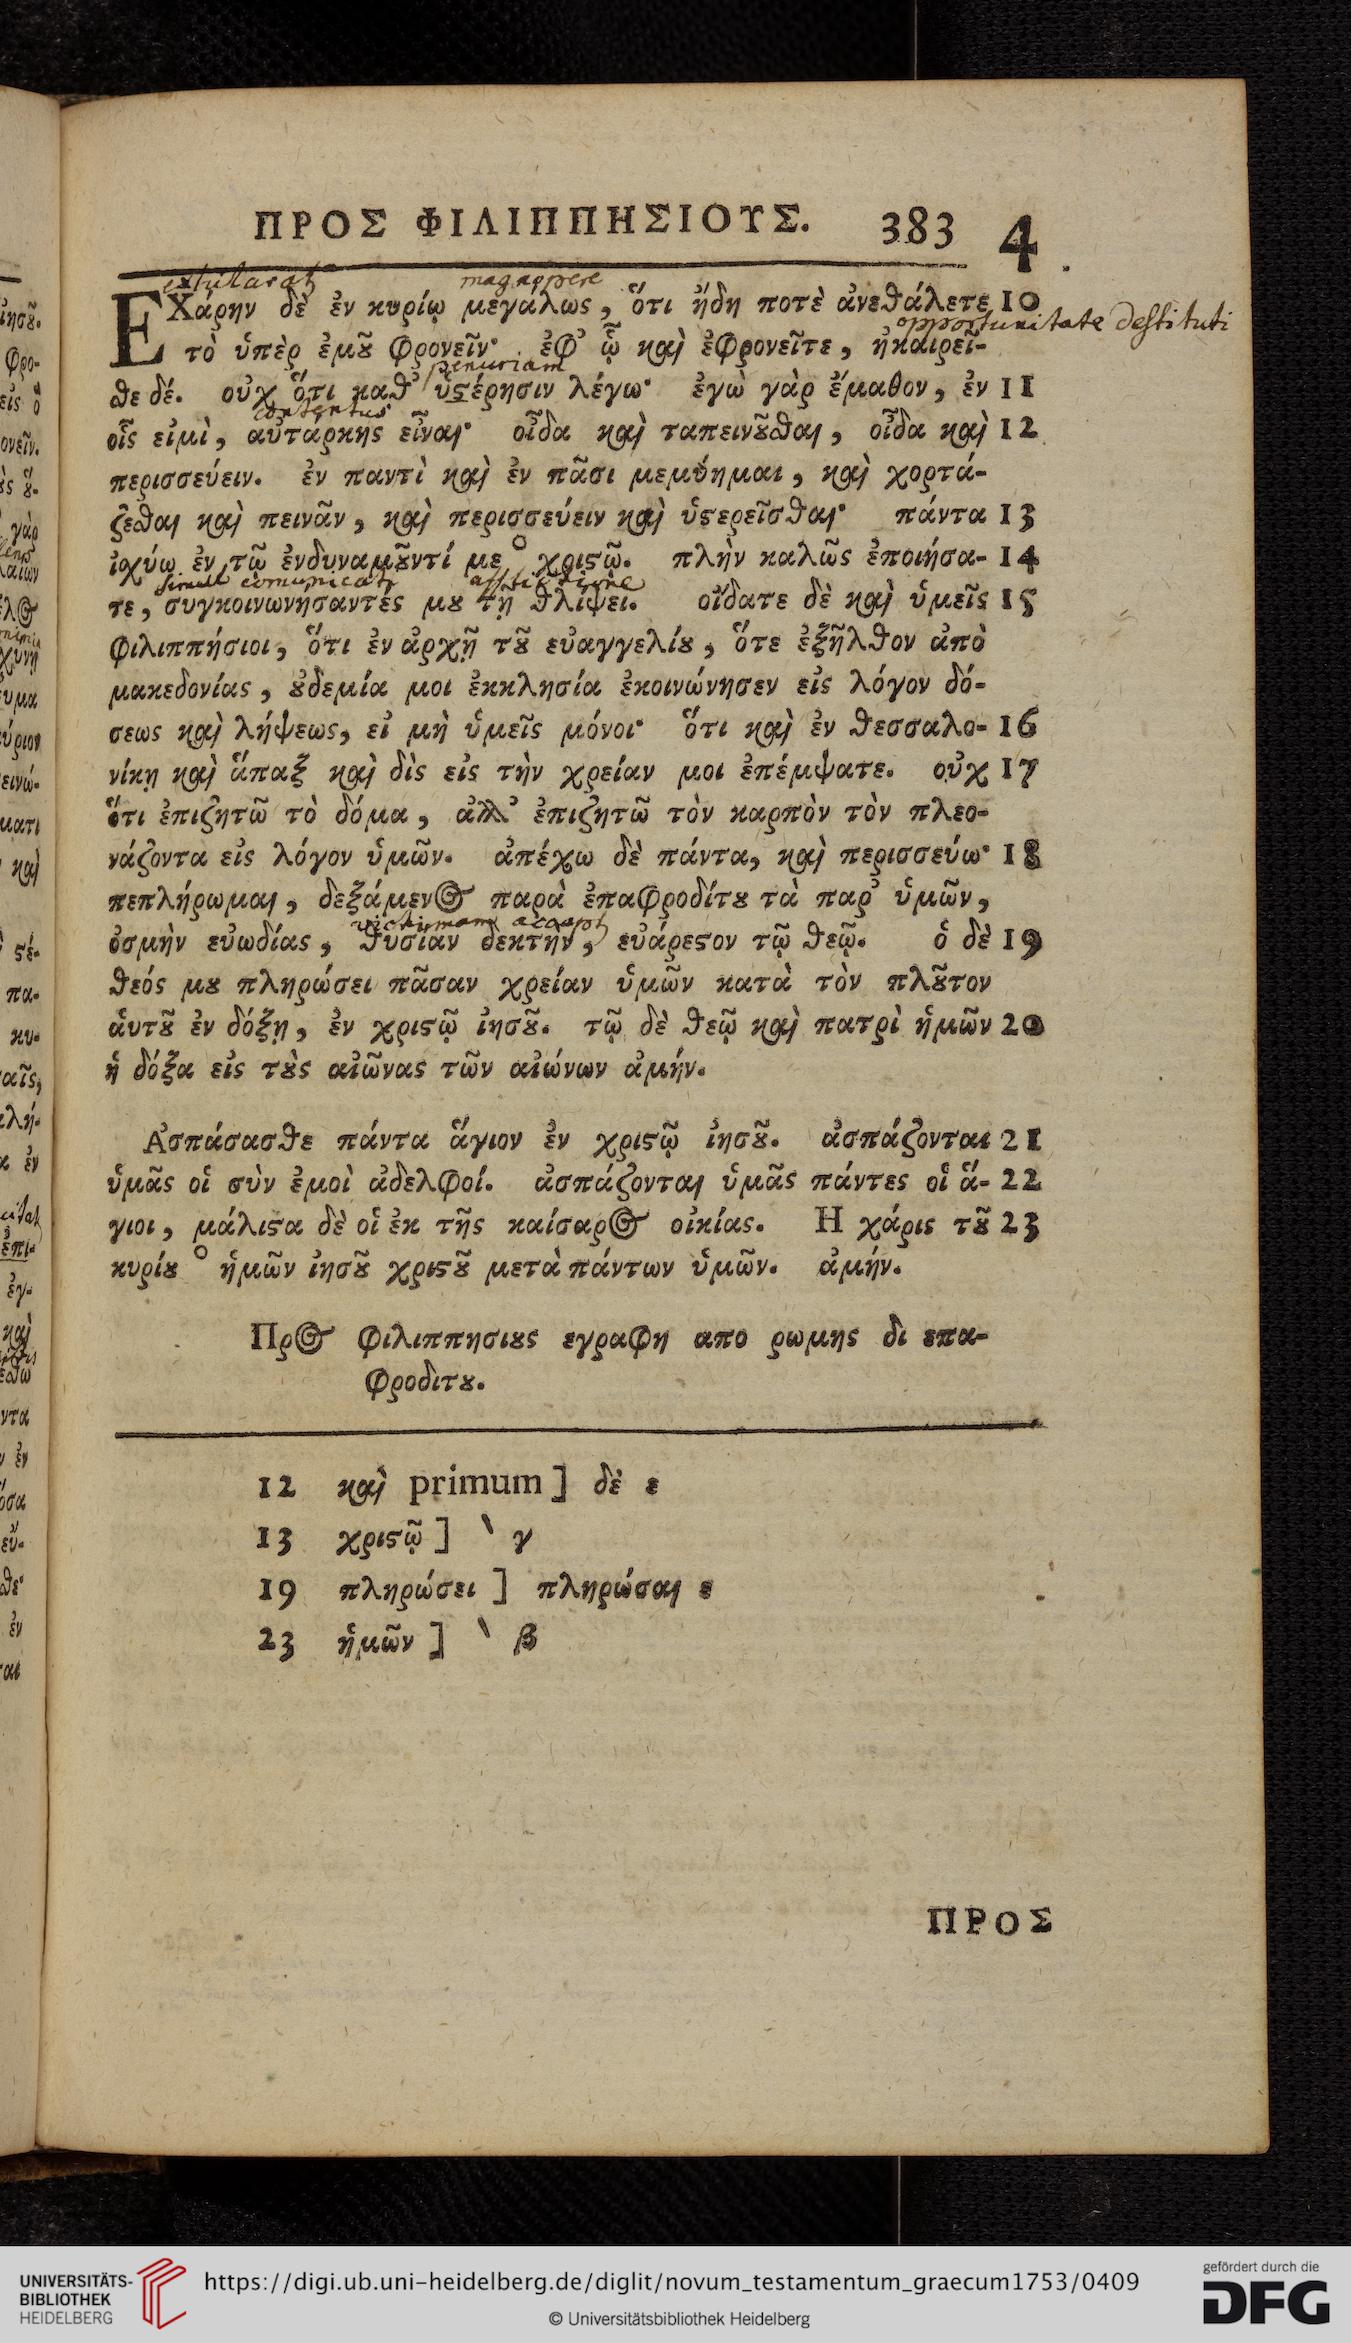 ΠΡΟΣ ΦΙΛΙΠΠΗΣΙΟΥΣ. 383 4
exhilarat magnoppere
ΕΧάρην δὲ ἐν κυρίῳ μεγάλως, ὅτι ἤδη ποτὲ ἀνεθάλετε 10
opportunitate destituti
τὸ ὑπὲρ ἐμȣ͂ φρονεῖν· ἐφ᾽ ᾧ καὶ ἐφρονεῖτε, ἠκαιρεῖ-
penuriam
σθε δέ. οὐχ ὅτι καθ᾽ ὑϛέρησιν λέγω· ἐγὼ γὰρ ἔμαθον, ἐν 11
contentus
οἷς εἰμὶ, αὐτάρκης εἶναι· οἶδα καὶ ταπεινȣ͂σθαι, οἶδα καὶ 12
περισσεύειν. ἐν παντὶ καὶ ἐν πᾶσι μεμύημαι, καὶ χορτά-
ζεσθαι καὶ πεινᾶν, καὶ περισσεύειν καὶ ὑϛερεῖσθαι· πάντα 13
ἰσχύω ἐν τῷ ἐνδυναμȣ͂ντί με ° χριϛῷ. πλὴν καλῶς ἐποιήσα- 14
simul comunicat afflictione
τε, συγκοινωνήσαντές μȣ τῇ θλίψει. οἴδατε δὲ καὶ ὑμεῖς 15
φιλιππήσιοι, ὅτι ἐν ἀρχῇ τȣ͂ εὐαγγελίȣ, ὅτε ἐξῆλθον ἀπὸ
μακεδονίας, ȣ̓δεμία μοι ἐκκλησία ἐκοινώνησεν εἰς λόγον δό-
σεως καὶ λήψεως, εἰ μὴ ὑμεῖς μόνοι· ὅτι καὶ ἐν θεσσαλο- 16
νίκῃ καὶ ἅπαξ καὶ δὶς εἰς τὴν χρείαν μοι ἐπέμψατε. οὐχ 17
ὅτι ἐπιζητῶ τὸ δόμα, ἀλλ᾽ ἐπιζητῶ τὸν καρπὸν τὸν πλεο-
νάζοντα εἰς λόγον ὑμῶν. ἀπέχω δὲ πάντα, καὶ περισσεύω· 18
πεπλήρωμαι, δεξάμενος παρὰ ἐπαφροδίτȣ τὰ παρ᾽ ὑμῶν,
victimam accept
ὀσμὴν εὐωδίας, θυσίαν δεκτὴν, εὐάρεϛον τῷ θεῷ. ὁ δὲ 19
θεός μȣ πληρώσει πᾶσαν χρείαν ὑμῶν κατὰ τὸν πλȣ͂τον
ἁυτȣ͂ ἐν δόξῃ, ἐν χριϛῷ ἰησȣ͂. τῷ δὲ θεῷ καὶ πατρὶ ἡμῶν 20
ἡ δόξα εἰς τȣ̀ς αἰῶνας τῶν αἰώνων ἀμήν.
Ἀσπάσασθε πάντα ἅγιον ἐν χριϛῷ ἰησȣ͂. ἀσπάζονται 21
ὑμᾶς οἱ σὺν ἐμοὶ ἀδελφοί. ἀσπάζονται ὑμᾶς πάντες οἱ ἅ- 22
γιοι, μάλιϛα δὲ οἱ ἐκ τῆς καίσαρος οἰκίας. Η χάρις τȣ͂ 23
κυρίȣ ° ἡμῶν ἰησȣ͂ χριϛȣ͂ μετὰ πάντων ὑμῶν. ἀμήν.
Προς φιλιππησιȣς εγραφη απο ρωμης δι επα-
φροδιτȣ.
12 καὶ primum ] δὲ ε
13 χριϛῷ ] ‵ γ
19 πληρώσει ] πληρώσαι ε
23 ἡμῶν ] ‵ β
ΠΡΟΣ
UNIVERSITÄTS-
BIBLIOTHEK
HEIDELBERG
https://digi.ub.uni-heidelberg.de/diglit/novum_testamentum_graecum1753/0409
© Universitätsbibliothek Heidelberg
gefördert durch die
DFG